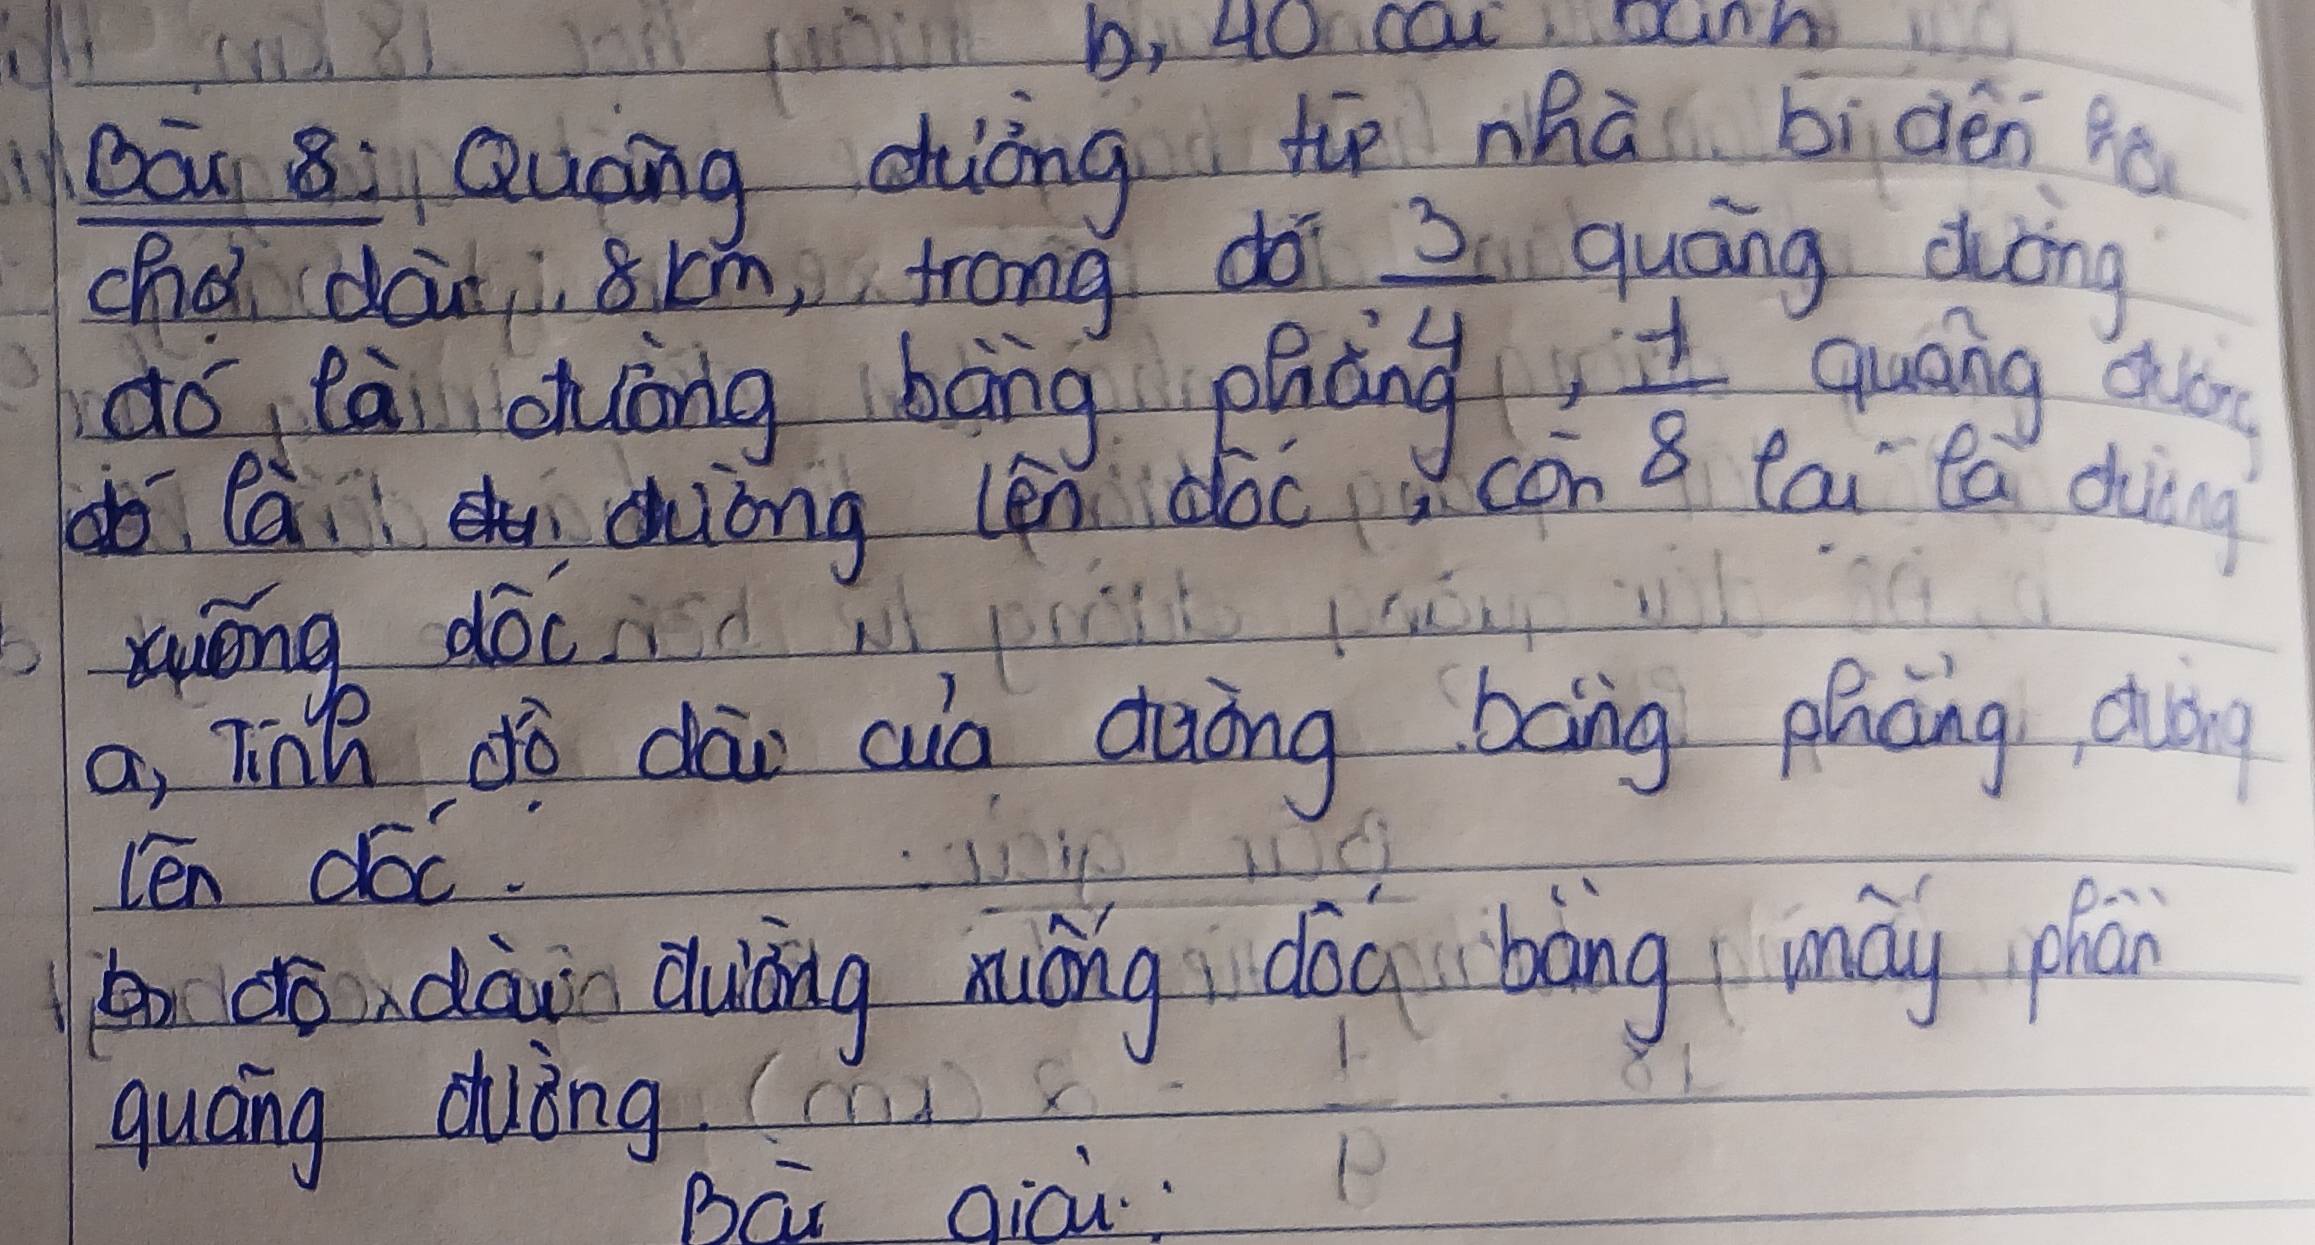 b, 40 cái bánh
Bài 8: Quãng đường từ nhà bi đến hội
chợ dài 8km, trong đó 3/4 quãng đường
đó là đường bằng phẳng, 1/8 quãng đường
đó là đường lên dốc, còn lại là đường
xuống dốc
a, Tính độ dài của đường bằng phẳng, đường
lên dốc.
b, độ dài đường xuống dốc bằng mấy phần
quãng đường.
Bài giải: